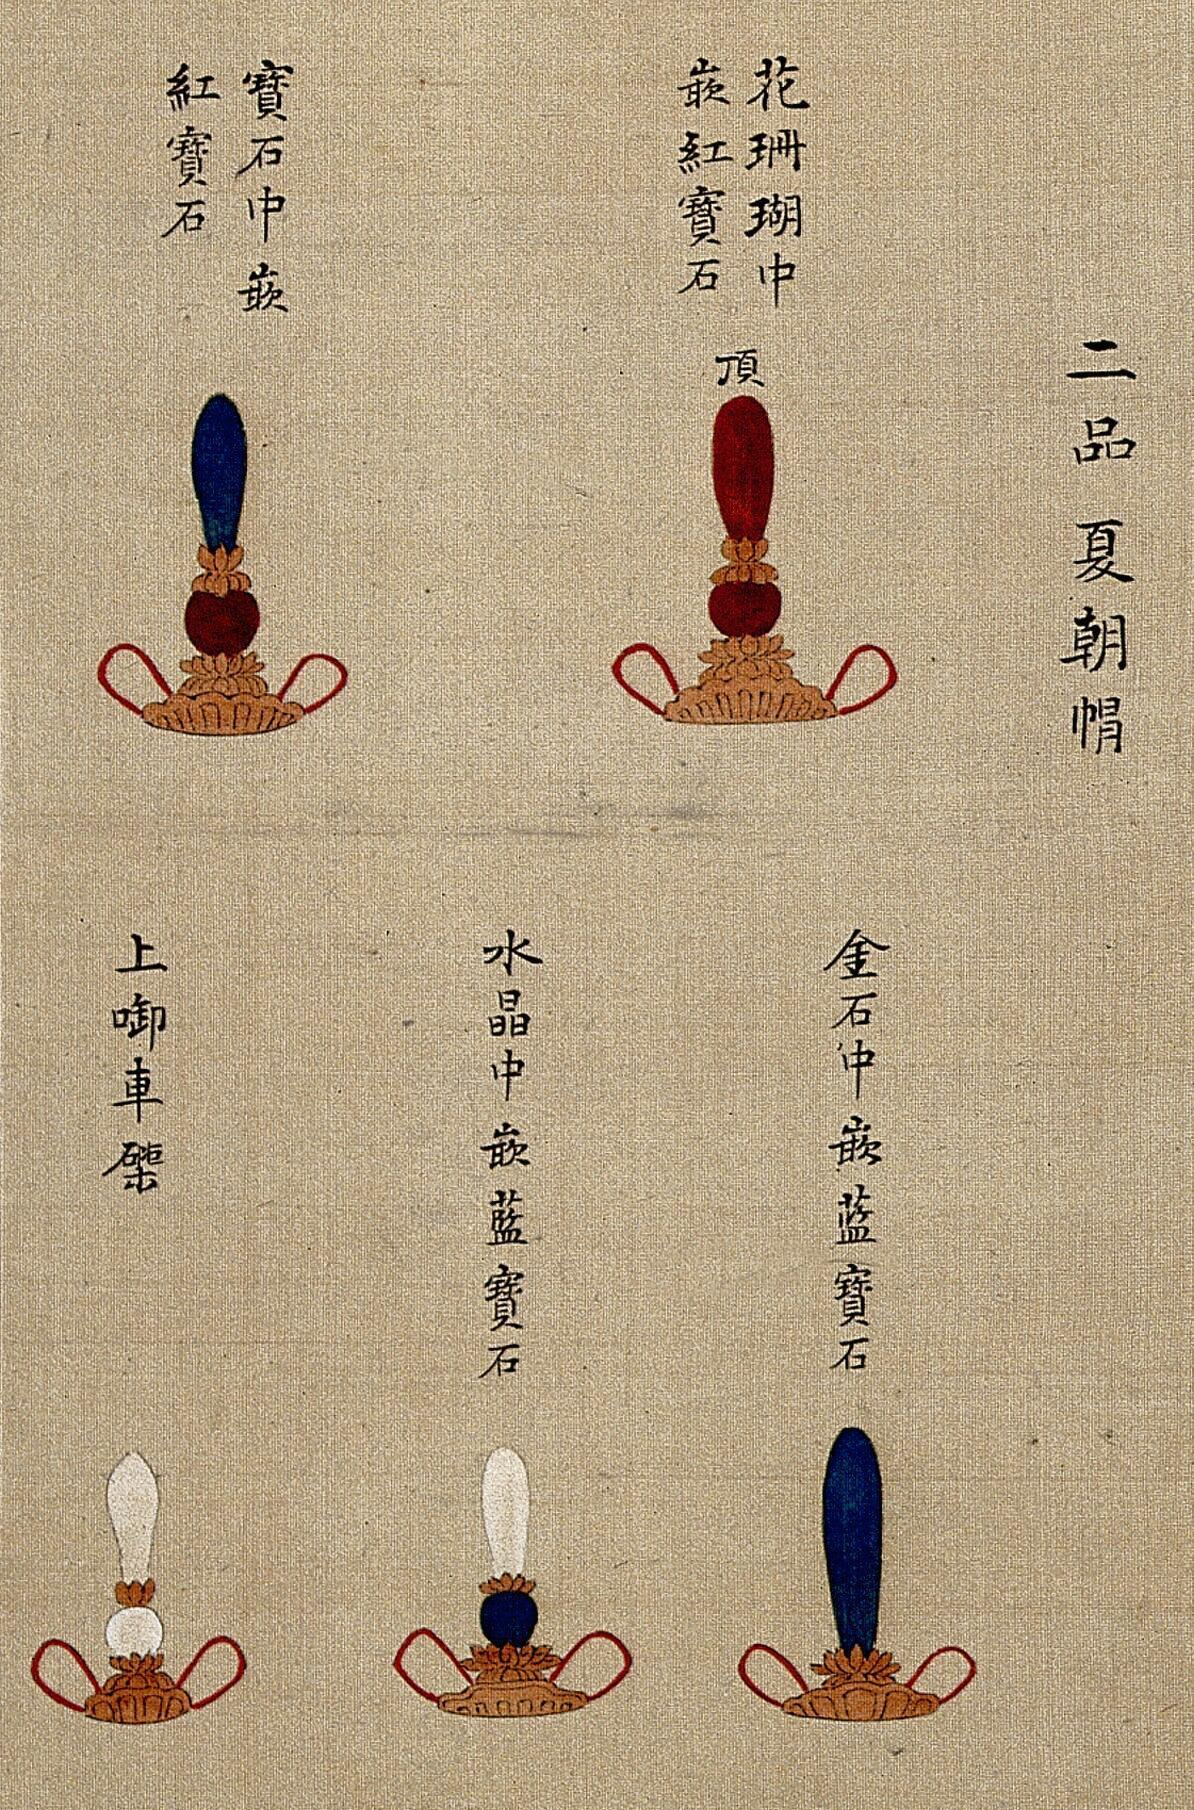 二品夏朝帽
花珊瑚中
嵌紅寶石
頂
寶石中嵌
紅寶石
金石中嵌蓝寶石
水晶中嵌藍寶石
上啣車磲